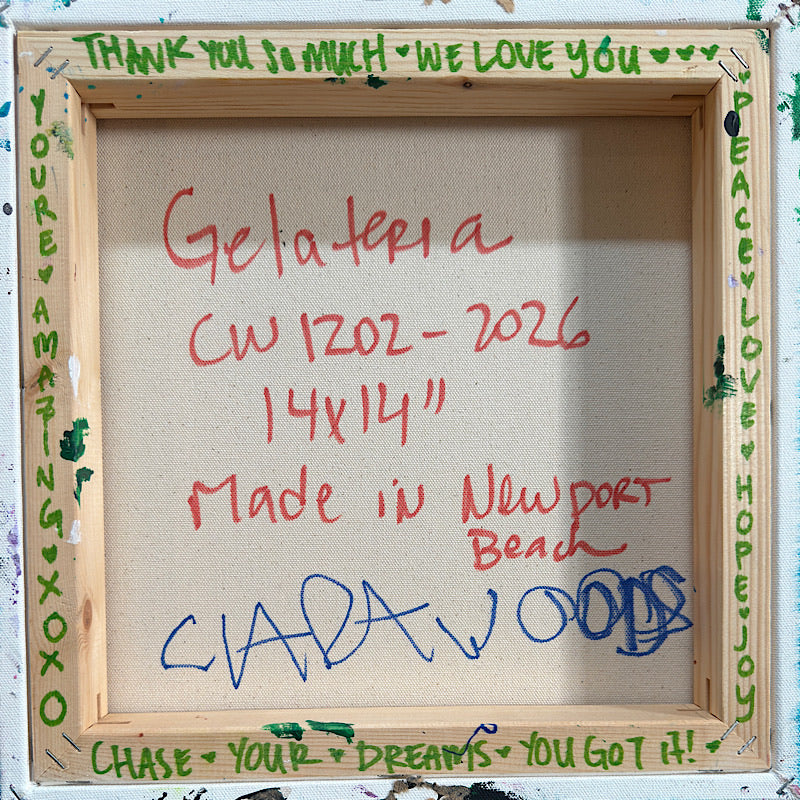 THANK YOU SO MUCH ♥ WE LOVE YOU ♥ ♥ ♥
YOURE ♥ AMAZING ♥ XOXO
PEACE ♥ LOVE ♥ HOPE ♥ JOY
Gelateria
CW 1202 - 2026
14x14"
Made in Newport
Beach
CLARA WOODS
CHASE ♥ YOUR ♥ DREAMS ♥ YOU GOT IT! ♥